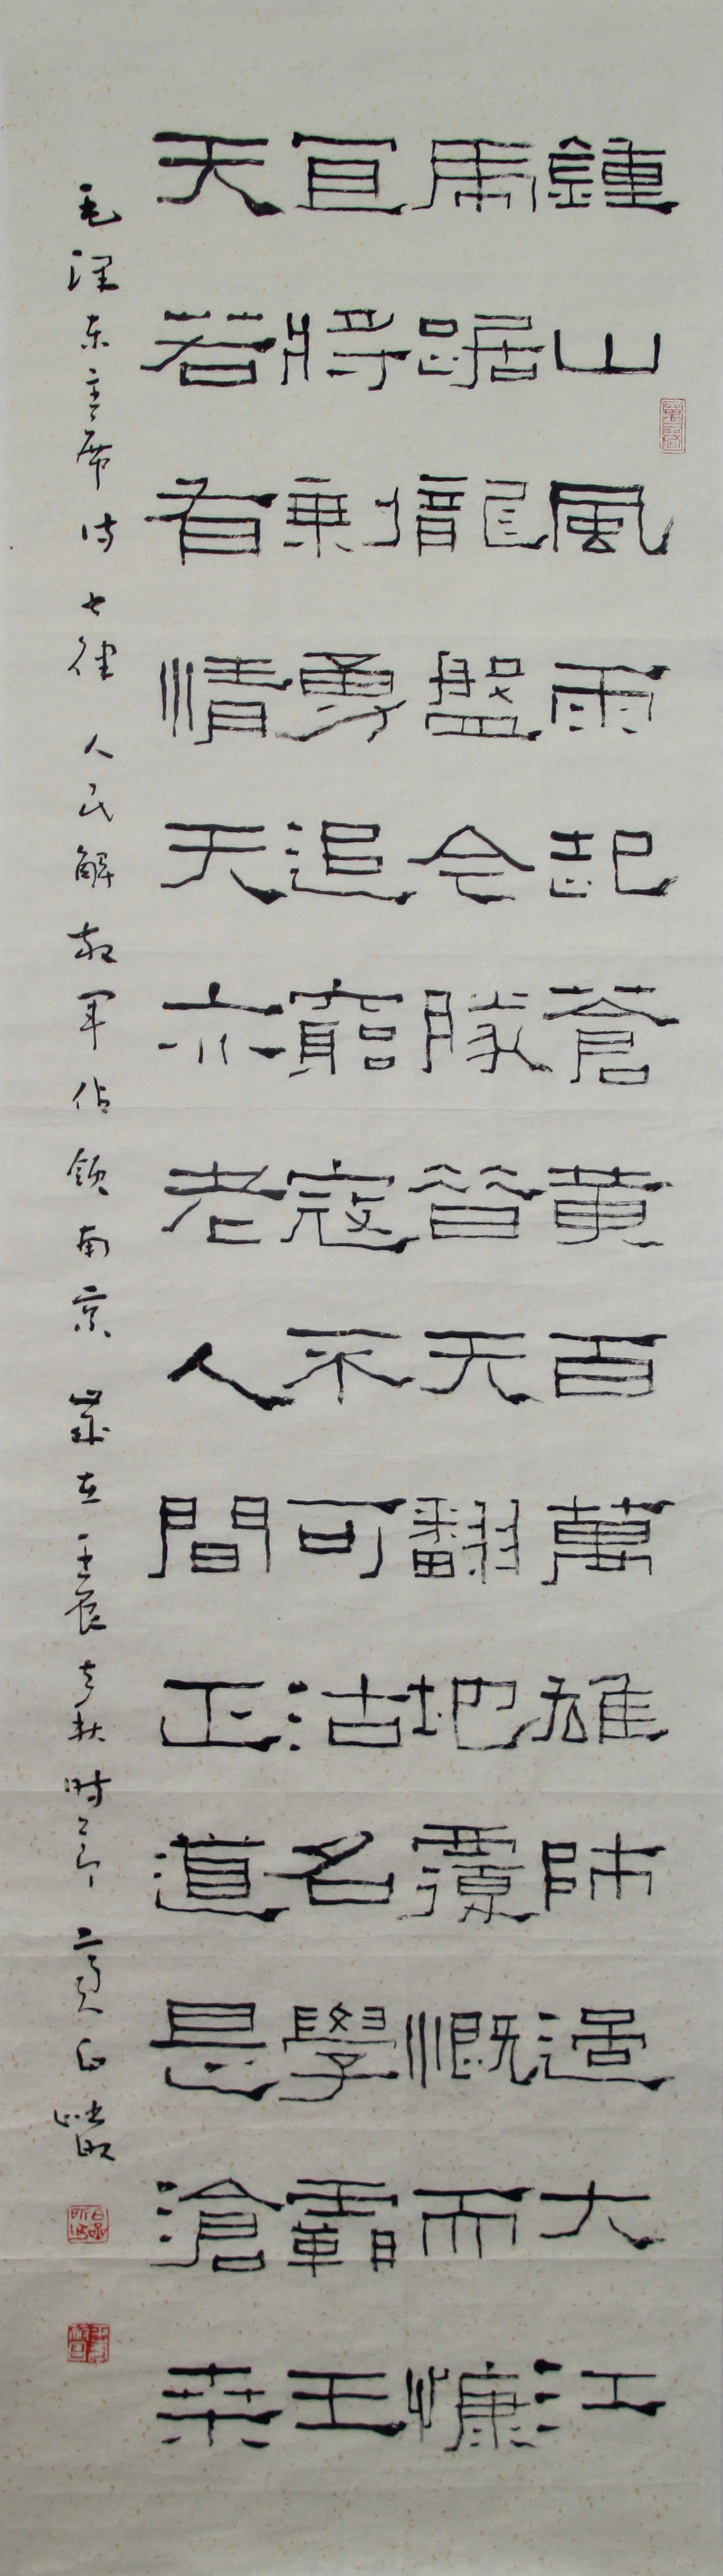 鍾山風雨起蒼黃百萬雄師過大江
虎踞龍盤今勝昔天翻地覆慨而慷
宜將剩勇追窮寇不可沽名學霸王
天若有情天亦老人間正道是滄桒
毛泽东主席诗七律 人民解放军佔领南京 岁在壬辰秋时节 白